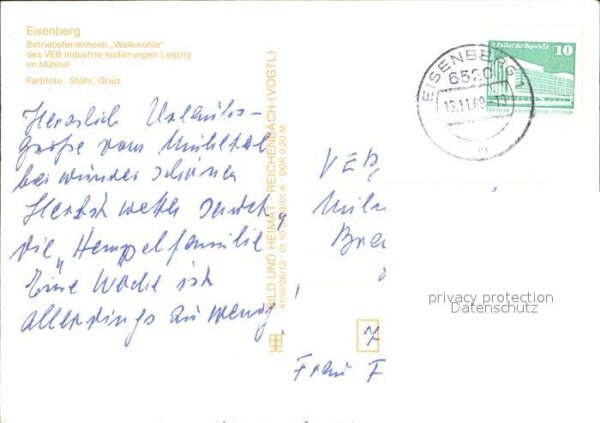 Eisenberg
Betriebsferienheim „Walkmühle"
des VEB Industrie-Isolierungen Leipzig
im Mühltal
Farbfoto: Stöhr, Greiz
Herzlich Urlaubs-
grüße vom Mühltal
bei wunderschönen
Herbstwetter sendet
die „Hempelfamilie
Eine Woche ist
allerdings zu wenig!
BILD UND HEIMAT REICHENBACH (VOGTL)
DDR 0,20 M
Palast der Republik
10
EISENBERG 1
6520
13.11.89
VEB
Frau F
privacy protection
Datenschutz